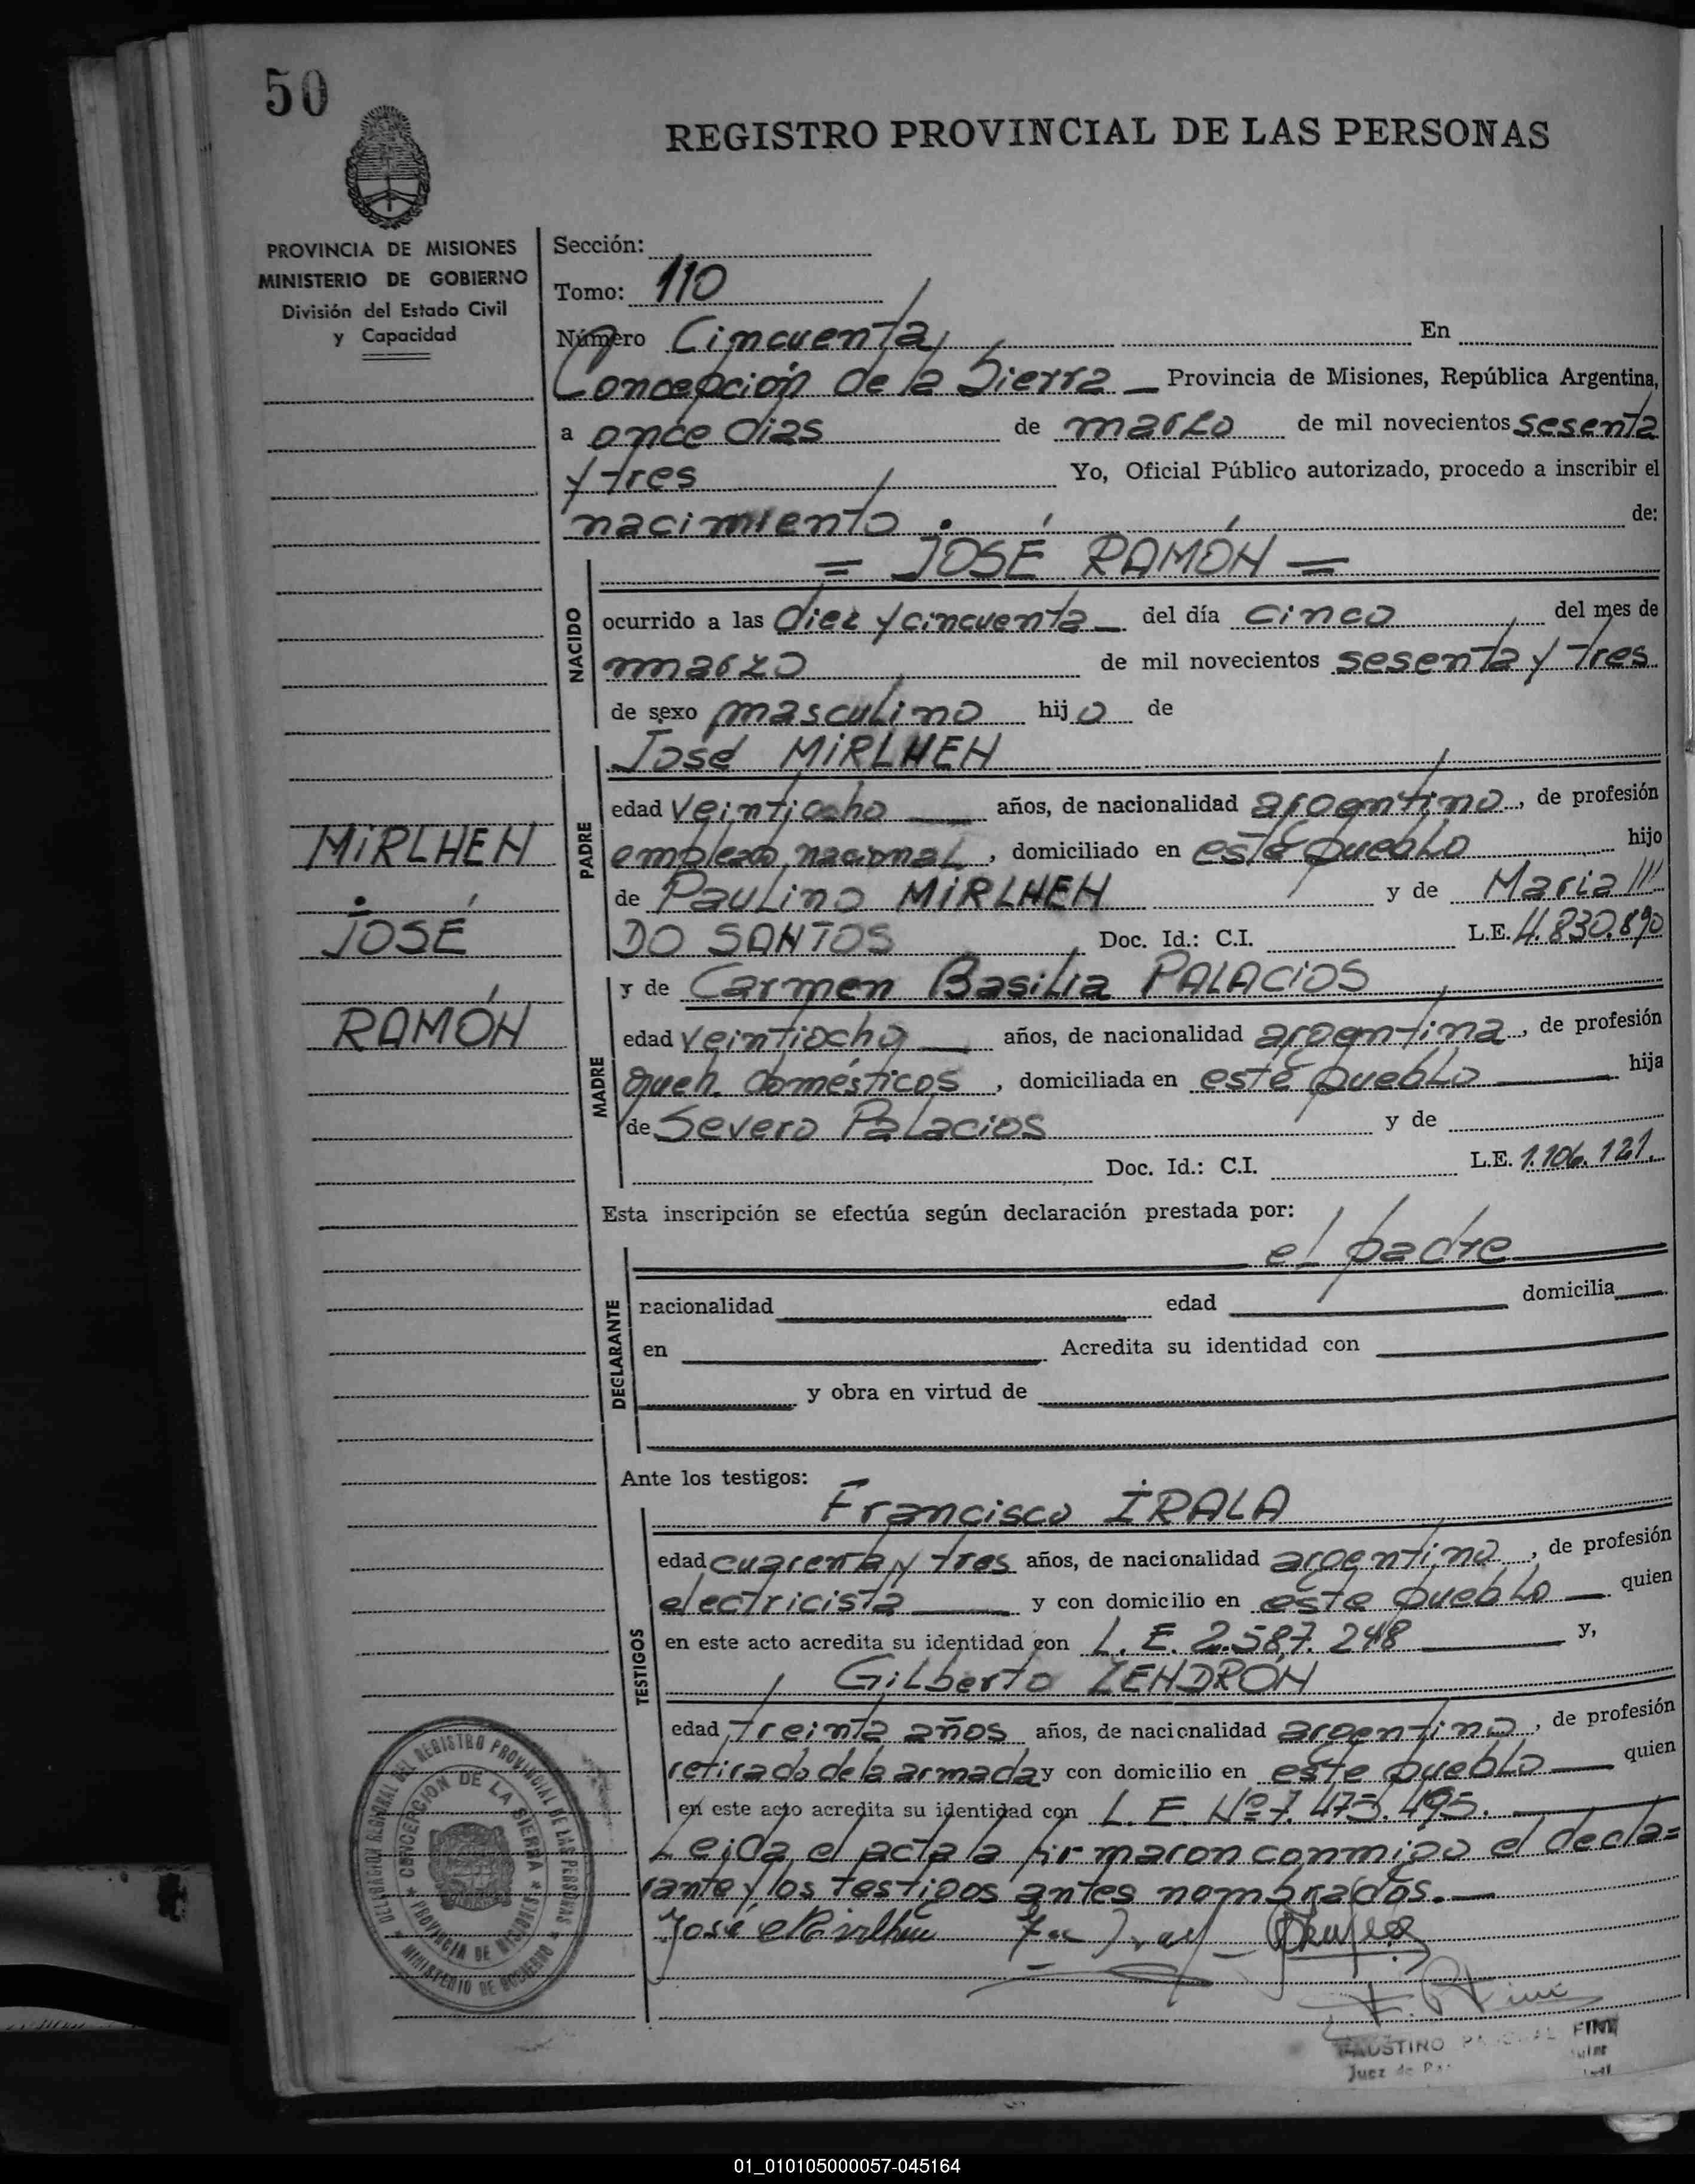 50
REGISTRO PROVINCIAL DE LAS PERSONAS
PROVINCIA DE MISIONES
MINISTERIO DE GOBIERNO
División del Estado Civil
y Capacidad
Sección:
Tomo: 110
Número Cincuenta En
Concepción de la Sierra Provincia de Misiones, República Argentina,
a once dias de marzo de mil novecientos sesenta
y tres Yo, Oficial Público autorizado, procedo a inscribir el
nacimiento de:
= JOSÉ RAMÓN =
NACIDO
ocurrido a las diez y cincuenta del día cinco del mes de
marzo de mil novecientos sesenta y tres
de sexo masculino hijo de
PADRE
José MIRLHEN
edad veintiocho años, de nacionalidad argentino, de profesión
empleado nacional, domiciliado en este pueblo hijo
de Paulino MIRLHEN y de Maria
DO SANTOS Doc. Id.: C.I. L.E. 4.830.890
MIRLHEN
JOSÉ
RAMÓN
MADRE
y de Carmen Basilia PALACIOS
edad veintiocho años, de nacionalidad argentina, de profesión
queh. domésticos, domiciliada en este pueblo hija
de Severo Palacios y de
Doc. Id.: C.I. L.E. 1.106.121.
Esta inscripción se efectúa según declaración prestada por:
el padre
DECLARANTE
nacionalidad edad domicilia
en Acredita su identidad con
y obra en virtud de
Ante los testigos:
TESTIGOS
Francisco IRALA
edad cuarenta y tres años, de nacionalidad argentino, de profesión
electricista y con domicilio en este pueblo quien
en este acto acredita su identidad con L. E. 2.587.248 y,
Gilberto ZENDRÓN
edad treinta años años, de nacionalidad argentino, de profesión
retirado de la armada y con domicilio en este pueblo quien
en este acto acredita su identidad con L. E. Nº 7.475.495.
Leida el acta la firmaron conmigo el decla=
rante y los testigos antes nombrados.
José Mirlhen
DELEGACION REGIONAL DEL REGISTRO PROVINCIAL DE LAS PERSONAS
* CONCEPCION DE LA SIERRA *
PROVINCIA DE MISIONES
* MINISTERIO DE GOBIERNO *
FAUSTINO
Juez de
01_010105000057-045164